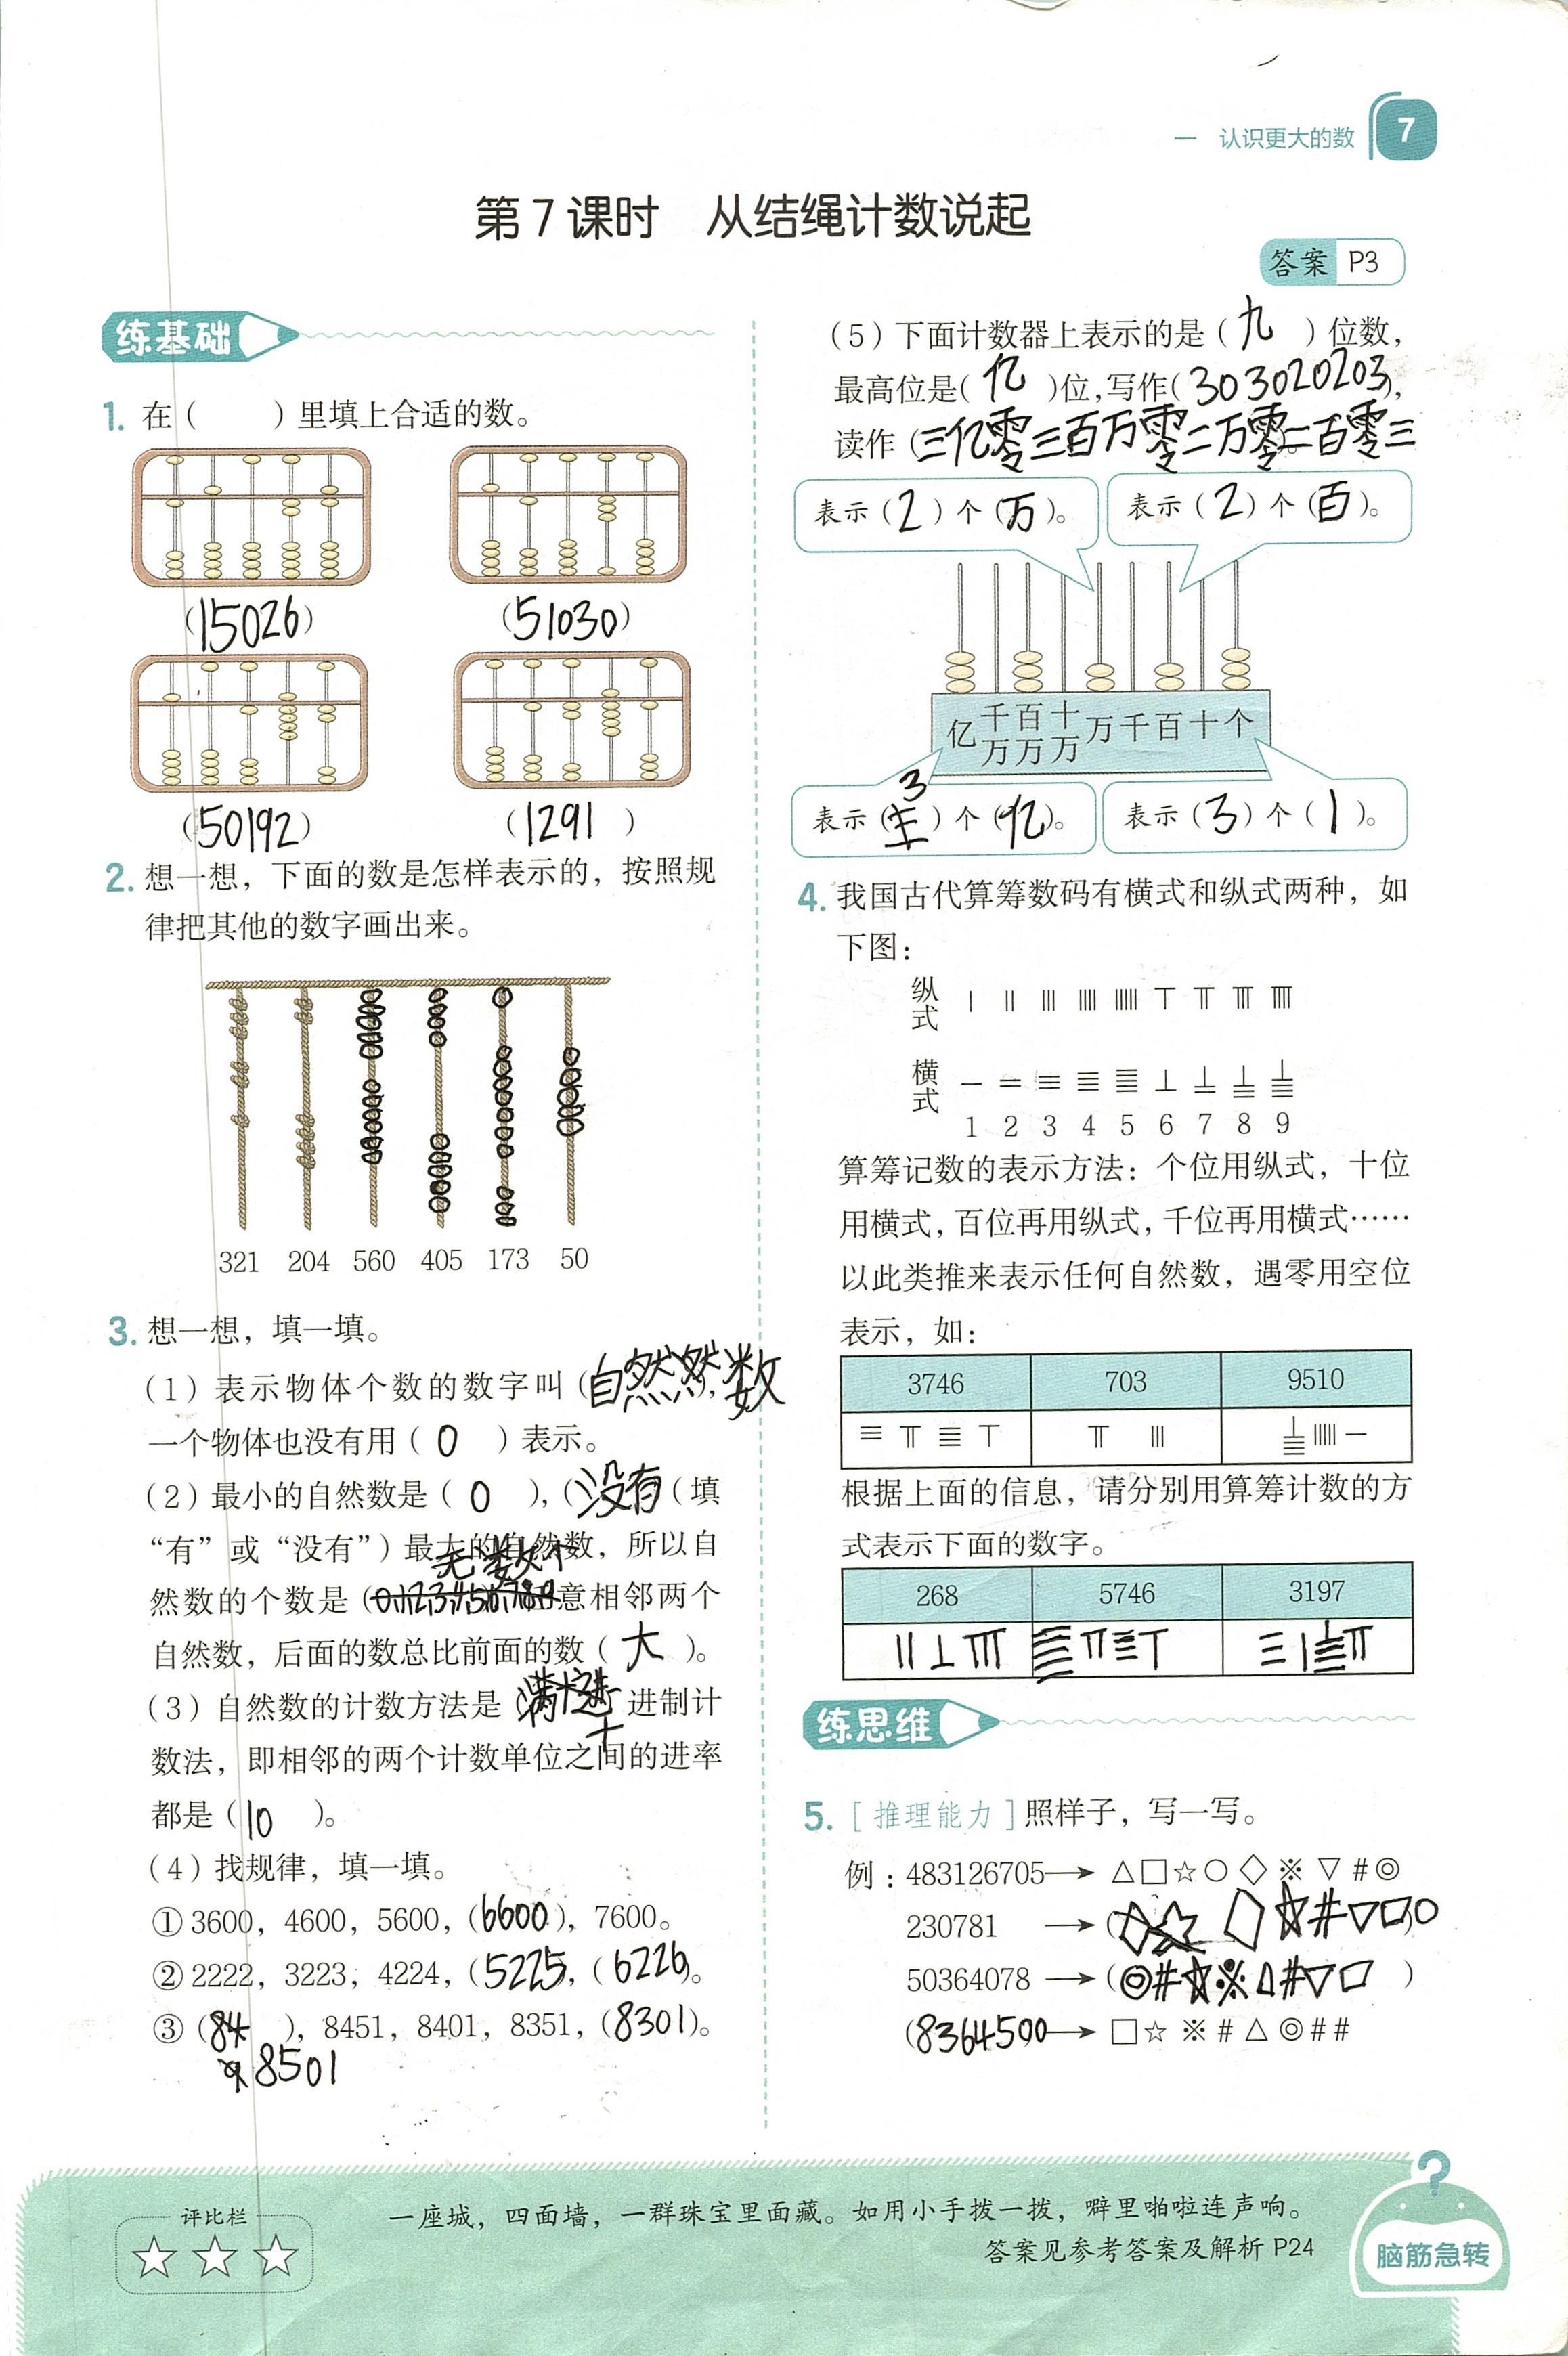 一 认识更大的数 7
第7课时 从结绳计数说起
答案 P3
练基础
1. 在( )里填上合适的数。
(15026) (51030)
(50192) (1291)
2. 想一想，下面的数是怎样表示的，按照规
律把其他的数字画出来。
321 204 560 405 173 50
3. 想一想，填一填。
(1) 表示物体个数的数字叫(自然数)，
一个物体也没有用(0)表示。
(2) 最小的自然数是(0)，(没有(填
“有”或“没有”)最大的自然数，所以自
无数个
然数的个数是( 任意相邻两个
自然数，后面的数总比前面的数(大)。
(3) 自然数的计数方法是(满十进 进制计
十
数法，即相邻的两个计数单位之间的进率
都是(10)。
(4) 找规律，填一填。
① 3600，4600，5600，(6600)，7600。
② 2222，3223，4224，(5225，(6226)。
③ (84 )，8451，8401，8351，(8301)。
8501
(5) 下面计数器上表示的是(九)位数，
最高位是(亿)位，写作(303020203)，
读作(三亿零三百万零二万零二百零三
表示(2)个(万)。 表示(2)个(百)。
亿 千万 百万 十万 万 千 百 十 个
3
表示( )个(亿)。 表示(3)个(1)。
4. 我国古代算筹数码有横式和纵式两种，如
下图：
纵式
横式
1 2 3 4 5 6 7 8 9
算筹记数的表示方法：个位用纵式，十位
用横式，百位再用纵式，千位再用横式……
以此类推来表示任何自然数，遇零用空位
表示，如：
3746 703 9510
根据上面的信息，请分别用算筹计数的方
式表示下面的数字。
268 5746 3197
练思维
5. [推理能力]照样子，写一写。
例：483126705→ △□☆○◇※▽#◎
230781 →( ◇☆#▽□○
50364078 →(◎#☆※△#▽□ )
(8364500→ □☆※#△◎##
评比栏
一座城，四面墙，一群珠宝里面藏。如用小手拨一拨，噼里啪啦连声响。
答案见参考答案及解析 P24
脑筋急转